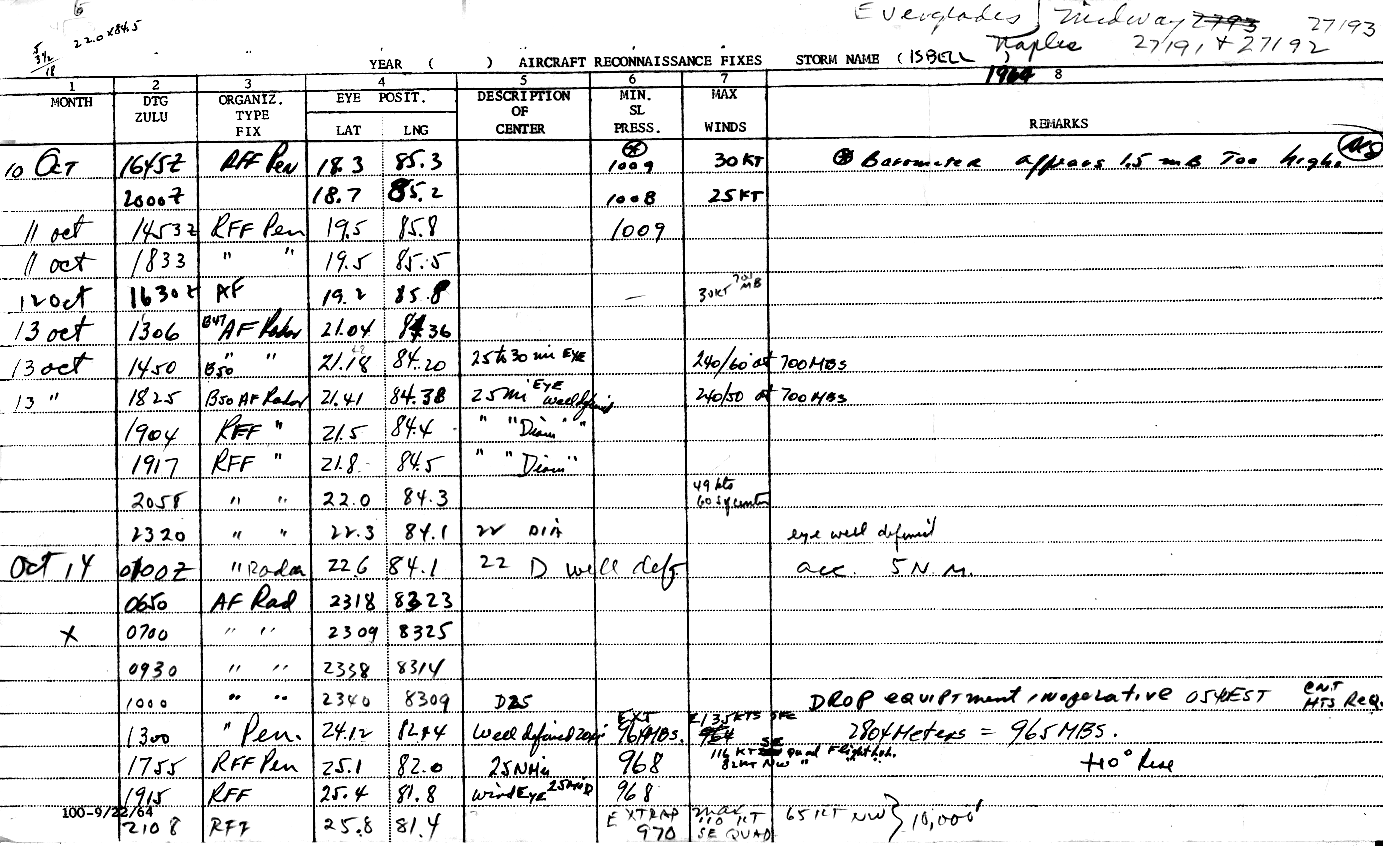 Everglades, Midway 2793 27193
22.0 x 84.5 Naples 27191 + 27192
YEAR ( ) AIRCRAFT RECONNAISSANCE FIXES STORM NAME (ISBELL)
1964
1 2 3 4 5 6 7 8
MONTH DTG ZULU ORGANIZ. TYPE FIX EYE POSIT. LAT LNG DESCRIPTION OF CENTER MIN. SL PRESS. MAX WINDS REMARKS
10 Oct 1645Z RFF Pen 18.3 85.3 1009 30 KT Barometer appears 1.5 mB Too high
2000Z 18.7 85.2 1008 25 KT
11 oct 1453Z RFF Pen 19.5 85.8 1009
11 oct 1833 " " 19.5 85.5
12 Oct 1630Z AF 19.2 85.8 — 30KT 701 MB
13 oct 1306 B47 AF Radar 21.04 84 36
13 oct 1450 B50 " " 21.18 84.20 25 to 30 mi EYE 240/60 at 700 MBS
13 " 1825 B50 AF Radar 21.41 84.38 25 mi EYE well defined 240/50 at 700 MBS
1904 RFF " 21.5 84.4 " "Diam" "
1917 RFF " 21.8 84.5 " " Diam"
2058 " " 22.0 84.3 49 kts 60 center
2320 " " 22.3 84.1 22 DIA eye well defined
Oct 14 0100Z " Radar 22.6 84.1 22 D well def acc. 5 N.M.
0650 AF Rad 2318 8323
X 0700 " " 2309 8325
0930 " " 2338 8314
1000 " " 2340 8309 D25 DROP equiptment inoperative 0545EST CNT HTS Req.
1300 " Pen. 24.12 82.44 Well defined EXT 964MBS. 135KTS SE 2804 Meters = 965 MBS.
1755 RFF Pen 25.1 82.0 25NMi 968 116 KTS SE Quad Flight 82KT NW " +10° Rise
1915 RFF 25.4 81.8 Wind Eye 25 968
100-9/22/64
2108 RFF 25.8 81.4 EXTRAP 970 max 110 KT SE QUAD 65 KT NW } 10,000'